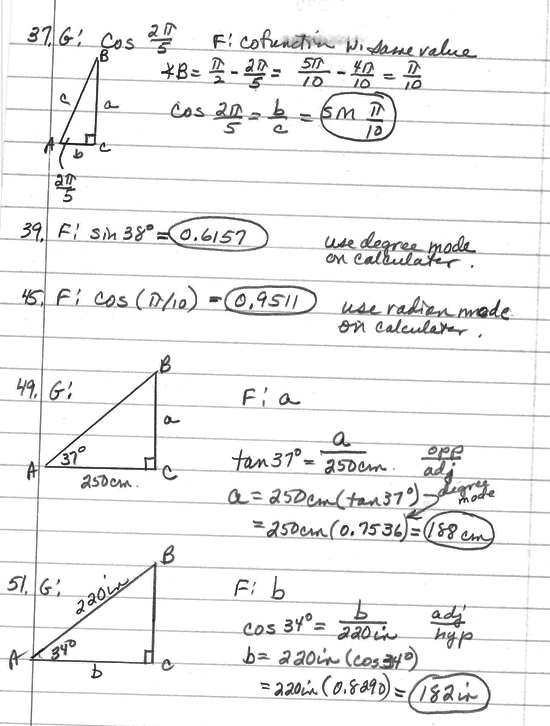 37. G: cos 2π/5 F: cofunction w. same value
B
*B = π/2 - 2π/5 = 5π/10 - 4π/10 = π/10
c a
cos 2π/5 = b/c = sin π/10
A b C
2π/5
39. F: sin 38° = 0.6157 use degree mode
on calculater.
45. F: cos (π/10) = 0.9511 use radian mode
on calculater.
49. G: B F: a
a
tan 37° = a/250cm. opp/adj
A 37° C
250cm.
a = 250cm (tan 37°) degree
mode
= 250cm (0.7536) = 188 cm
51. G: 220in B F: b
cos 34° = b/220in adj/hyp
A 34° C
b
b = 220in (cos 34°)
= 220in (0.8290) = 182in